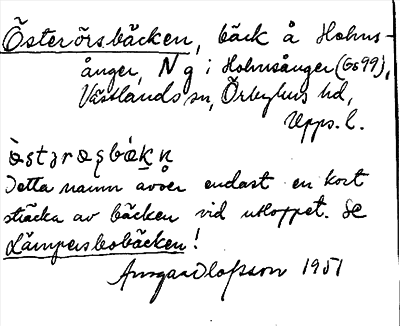 Österörsbäcken, bäck å Hohns-
ånger, N g i Hohnsånger (Gs99),
Västlands sn, Örbyhus hd,
Upps. l.
òstərœʂbækn̥
Detta namn avser endast en kort
sträcka av bäcken vid utloppet. Se
Lämpersbobäcken!
Ansgar Olofsson 1951